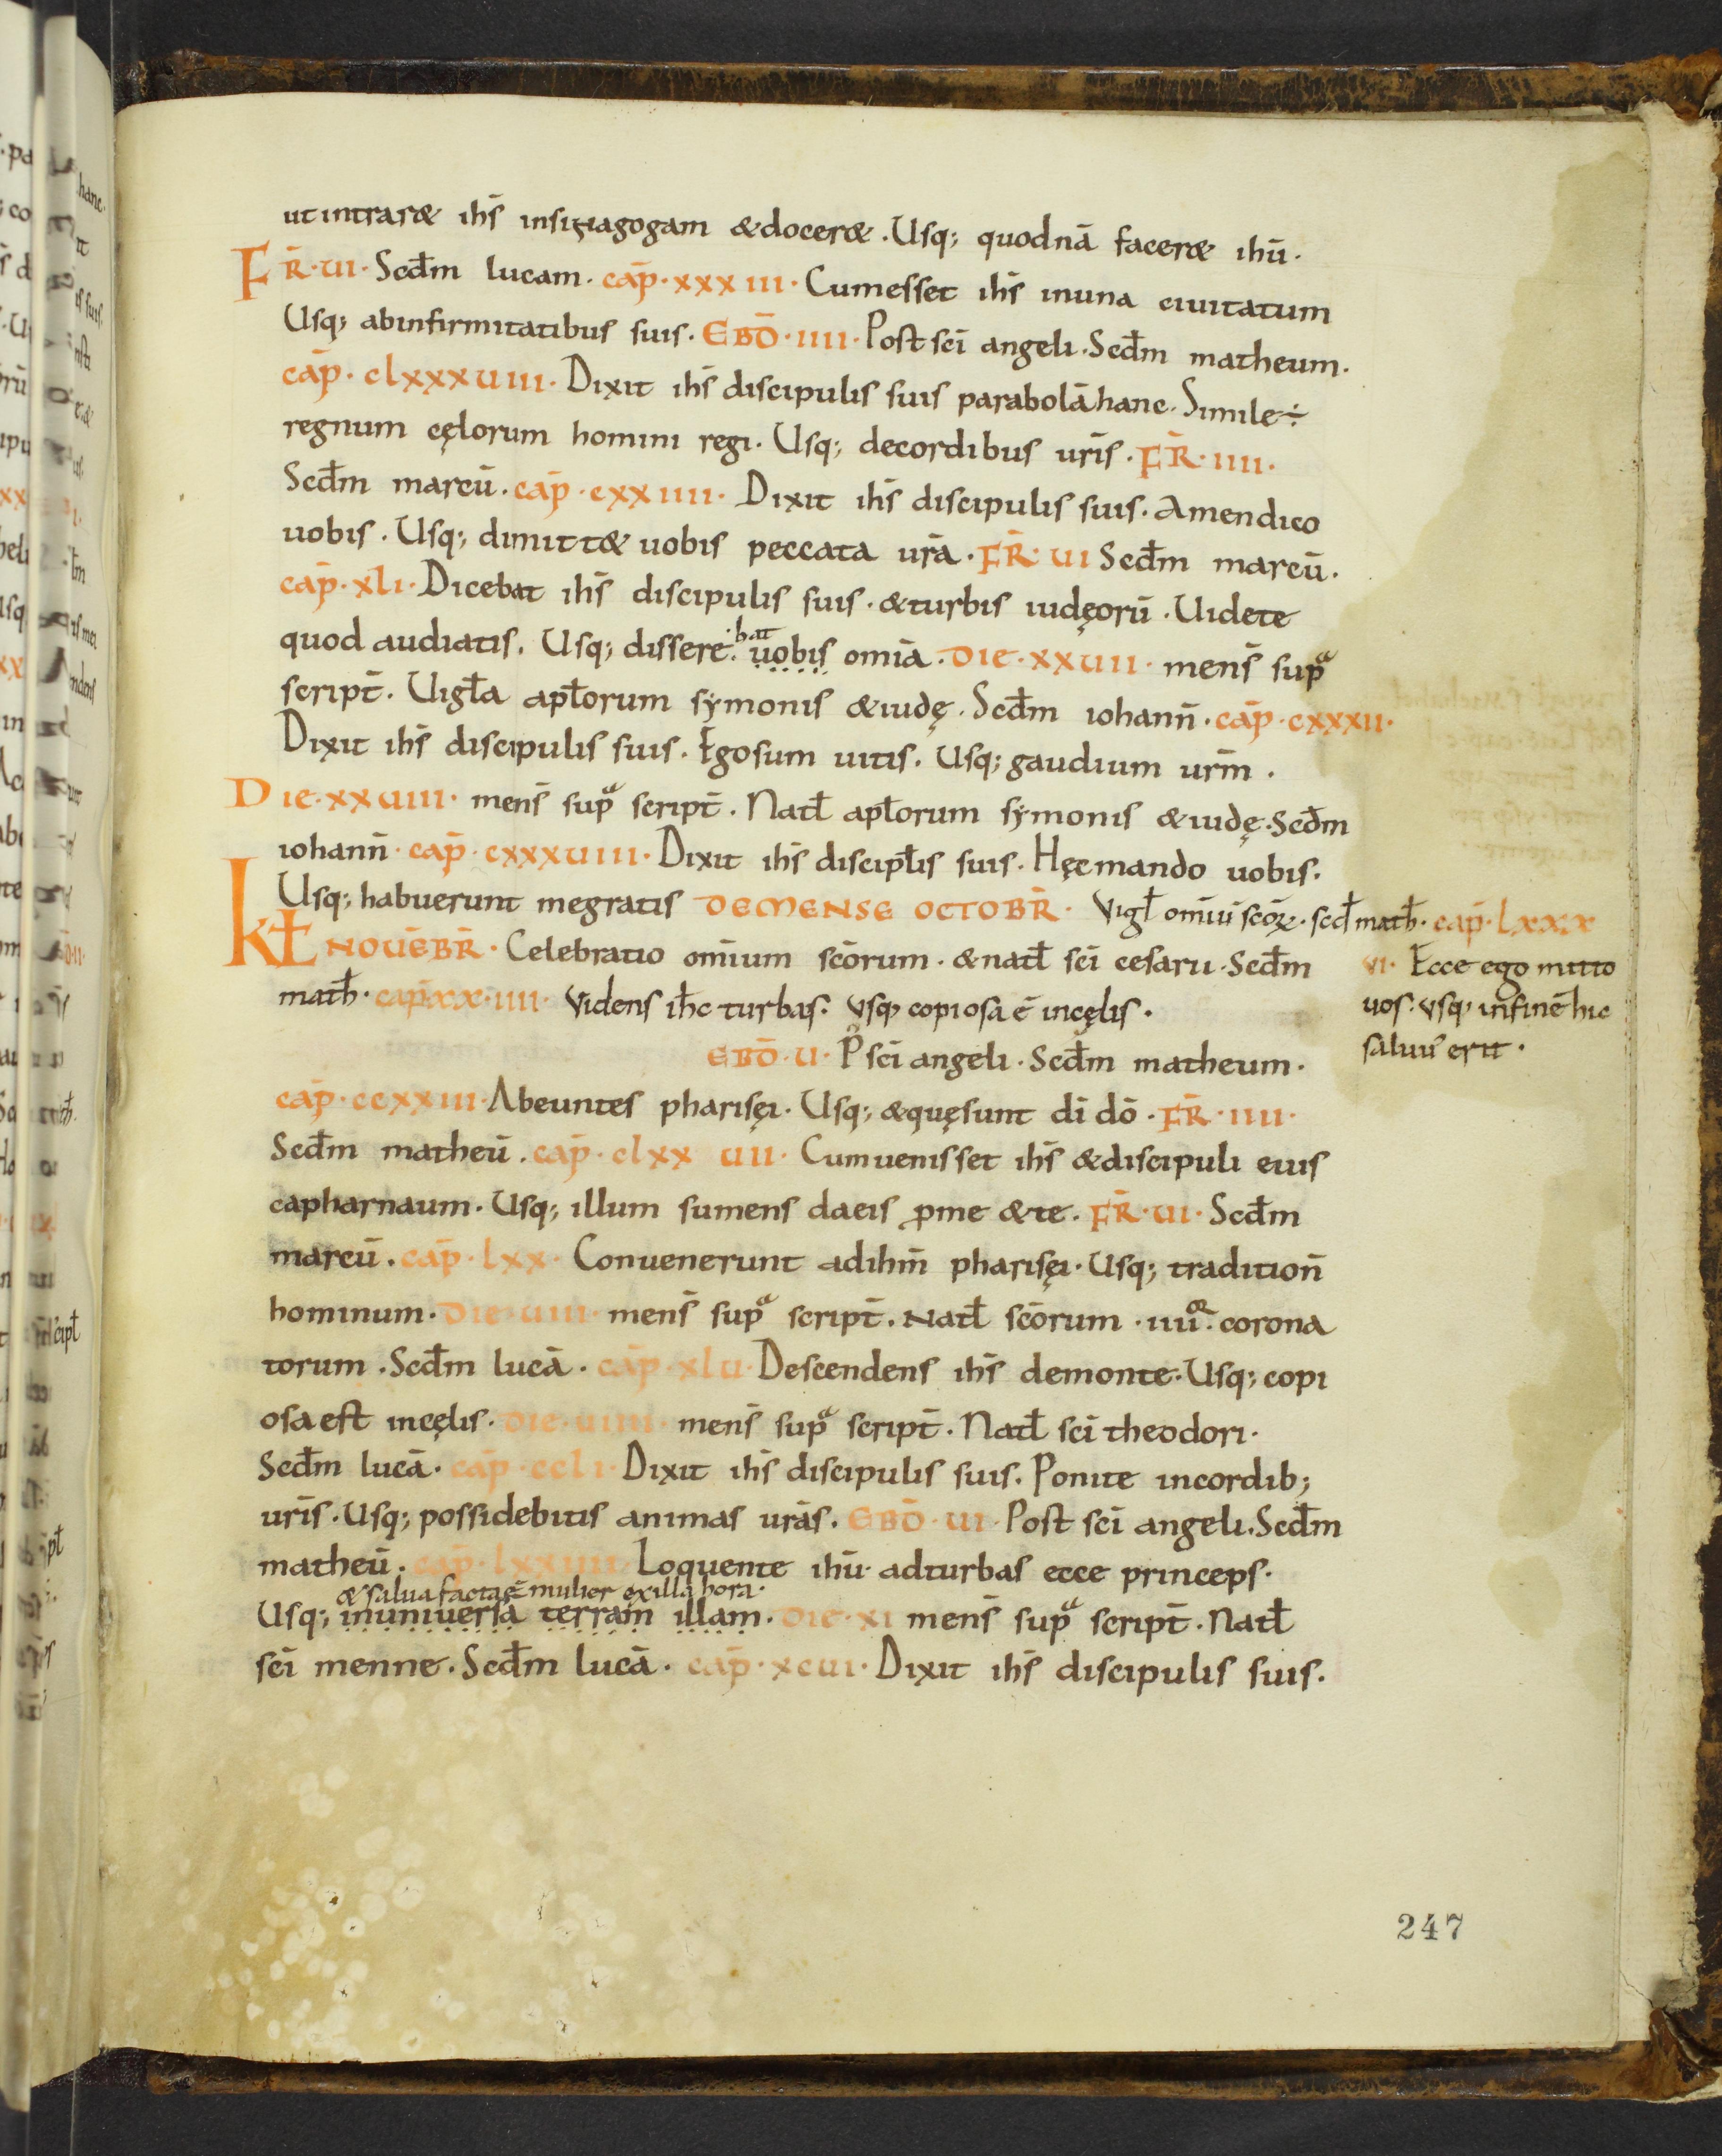 ut intrar& ihs̄ insinagogam &docer&. Usq; quodnā facer& ihū.
FR̄·UI· Scđm lucam. cap̄·xxxiii· Cumesset ihs̄ inuna ciuitatum
Usq; abinfirmitatibus suis. EBD̄·IIII· Post sc̄i angeli. Scđm matheum.
cap̄·clxxxuiii· Dixit ihs̄ discipulis suis parabolā hanc. Simile÷
regnum cęlorum homini regi. Usq; decordibus ur̄is. FR̄·IIII·
Scđm marcū. cap̄·cxxiiii· Dixit ihs̄ discipulis suis. Amendico
uobis. Usq; dimitt& uobis peccata ur̄a. FR̄·UI Scđm marcū.
cap̄·xli· Dicebat ihs̄ discipulis suis. &turbis iudęorū. Uidete
quod audiatis. Usq; dissere·bat· uobis omīa. DIE·XXUII· mens̄ supª
script̄. Uigł̄a apło̅rum symonis &iudę. Scđm iohann̄. cap̄·cxxxii·
Dixit ihs̄ discipulis suis. Egosum uitis. Usq; gaudium ur̄m.
DIE·XXUIII· mens̄ supª script̄. Natł apłorum symonis &iudę. Scđm
iohann̄· cap̄·cxxxuiii· Dixit ihs̄ discipłis suis. Hęcmando uobis.
Usq; habuerunt megratis DEMENSE OCTOBR̄· Vigł omīū sc̄oꝝ. scđ math̄· cap̄·Lxxx
Kł NOUĒBR̄· Celebratio omīum sc̄orum. &natł sc̄i cesarii. Scđm
ui· Ecce ego mitto
math̄· cap̄·xx·iiii· Videns ih̄c turbas. vsq; copiosa ē incęlis.
uos. vsq; infinē hic
saluū erit.
EBD̄·U· P̊ sc̄i angeli. Scđm matheum.
cap̄·ccxxiii· Abeuntes pharisęi. Usq; &quęsunt dī dō. FR̄·IIII·
Scđm matheū. cap̄·clxx uii· Cumuenisset ihs̄ &discipuli eius
capharnaum. Usq; illum sumens daeis ꝓme &te. FR̄·UI· Scđm
marcū. cap̄·lxx· Conuenerunt adihm̄ pharisęi. Usq; tradition̄
hominum. DIE·UIII· mens̄ supª script̄. Natł sc̄orum ·iiii or· corona
torum. Scđm lucā. cap̄·xlu· Descendens ihs̄ demonte. Usq; copi
osaest incęlis. DIE·UIIII· mens̄ supª script̄. Natł sc̄i theodori.
Scđm lucā. cap̄·ccli· Dixit ihs̄ discipulis suis. Ponite incordib;
ur̄is. Usq; possidebitis animas ur̄as. EBD̄·UI· Post sc̄i angeli. Scđm
matheū. cap̄·lxxiiii· Loquente ihū adturbas ecce princeps.
&salua facta ē mulier exilla hora.
Usq; inuniuersā terram illam. DIE·XI mens̄ supª script̄. Natł
sc̄i menne. Scđm lucā. cap̄·xcui· Dixit ihs̄ discipulis suis.
247